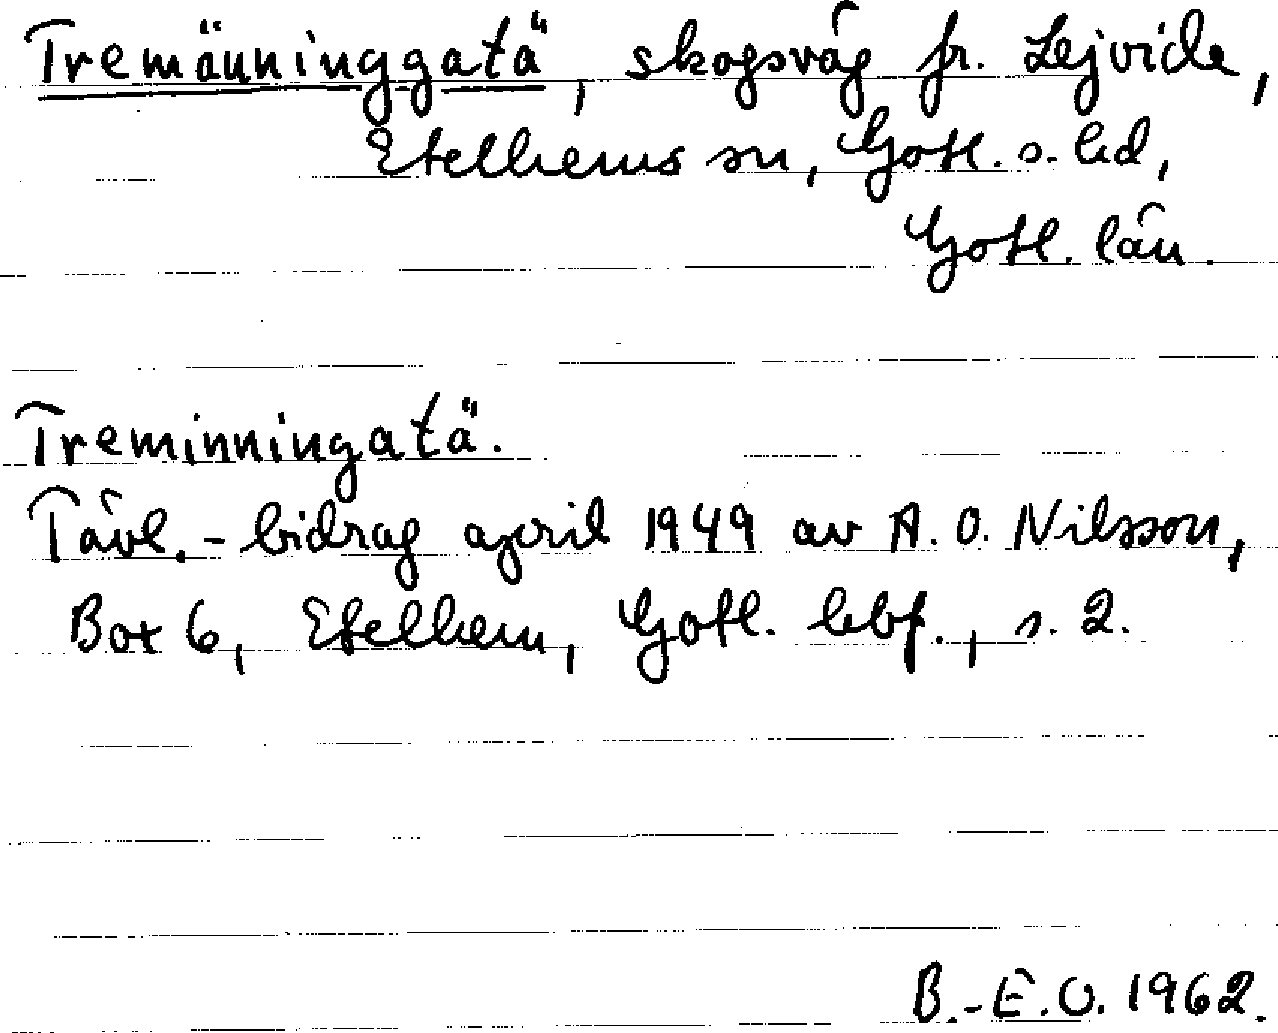 Tremänninggatä, skogsväg fr. Lejvide,
Etelhems sn, Gotl. s. hd,
Gotl. län.
Treminningatä.
Tävl.-bidrag april 1949 av A. O. Nilsson,
Box 6, Etelhem, Gotl. hbf., s. 2.
B.-E.O. 1962.